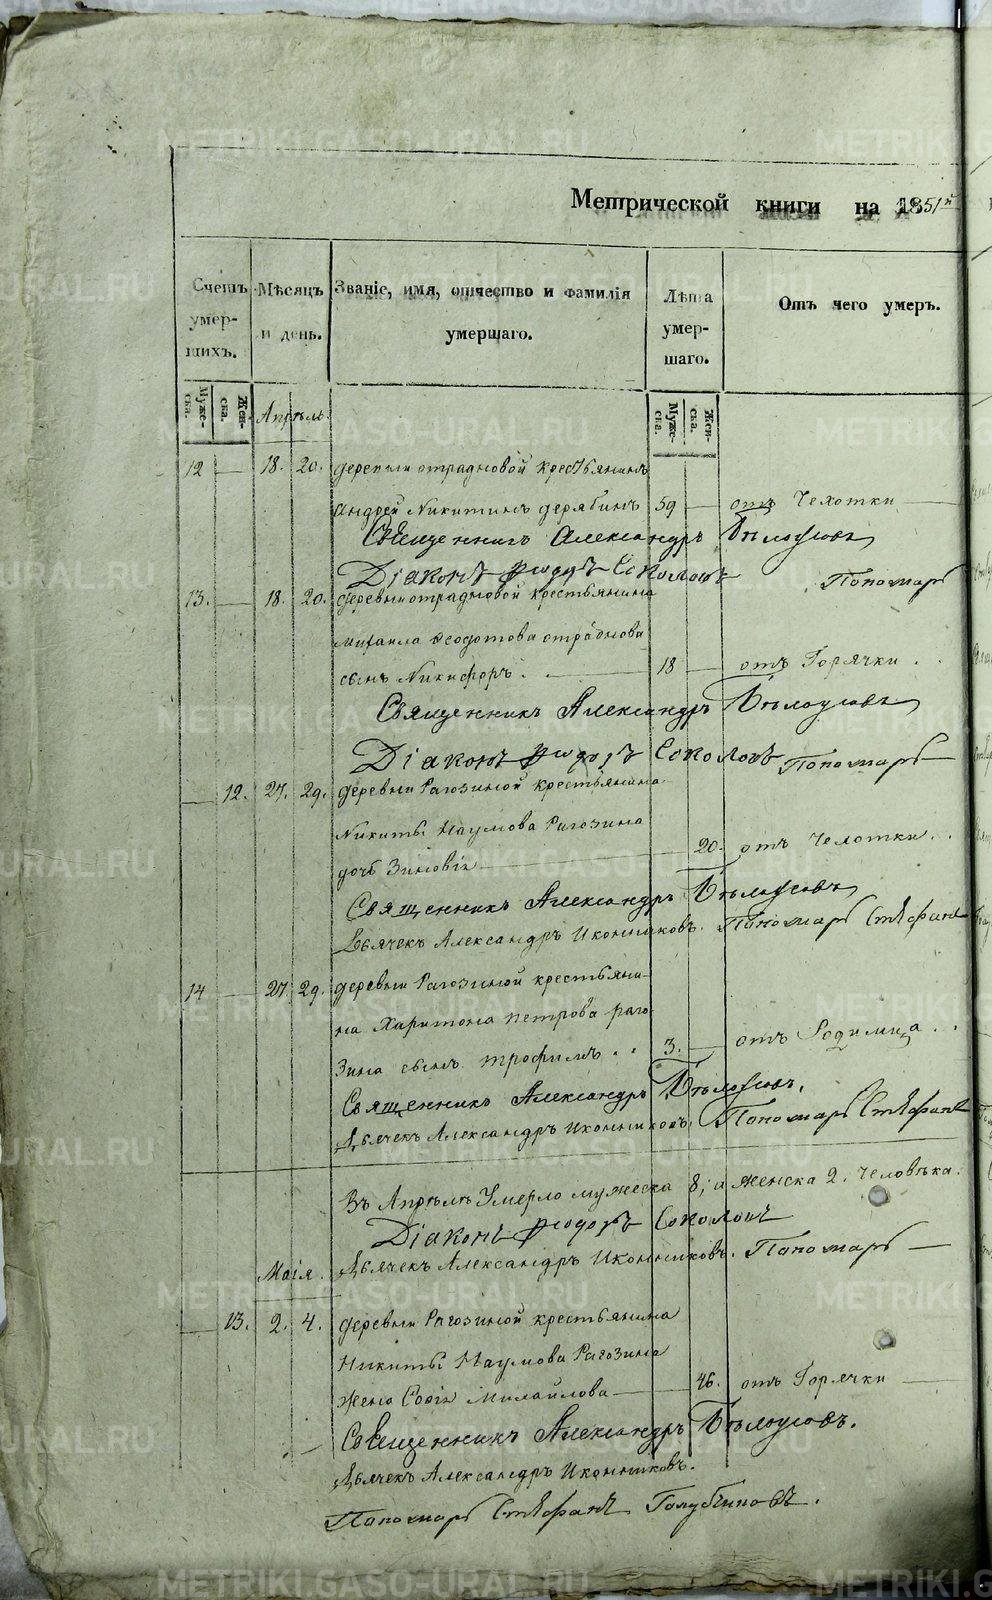 METRIKI.GASO-URAL.RU
Метрической книги на 1851й
Счетъ умер- шихъ.
Мѣсяцъ и день.
Званіе, имя, отчество и фамилія умершаго.
Лѣта умер- шаго.
Отъ чего умеръ.
Муже- ска.
Жен- ска.
Апрѣль.
Муже- ска.
Жен- ска.
12 — 18. 20. деревни отрадновой крестьянинъ
Андрей Никитинъ дерябинъ 59 — отъ Чехотки
Священникъ Александръ Бѣлоусовъ
Діаконъ Ѳиодоръ Соколовъ Пономарь
13. — 18. 20. деревни отрадновой крестьянина
Михаила Ѳеодотова отраднова
сынъ Никифоръ. 18 — отъ Горячки . .
Священникъ Александръ Бѣлоусовъ
Діаконъ Ѳиодоръ Соколовъ Пономарь
— 12. 27. 29. деревни Рагозиной крестьянина
Никиты Наумова Рагозина
дочь Зиновія 20. отъ Чехотки . .
Священникъ Александръ Бѣлоусовъ
Дьячекъ Александръ Иконниковъ. Пономарь Стефанъ
14 — 27. 29. деревни Рагозиной крестьяни-
на Харитона петрова раго-
зина сынъ трофимъ . . 3. — отъ Родимца . .
Священникъ Александръ Бѣлоусовъ.
Дьячекъ Александръ Иконниковъ. Пономарь Стефанъ
Въ Апрѣлѣ Умерло мужеска 8; а женска 2. Человѣка.
Діаконъ Ѳиодоръ Соколовъ
Дьячекъ Александръ Иконниковъ. Пономарь —
Маія.
— 13. 2. 4. деревни Рагозиной крестьянина
Никиты Наумова Рагозина
жена Софія Михайлова 46. отъ Горячки
Священникъ Александръ Бѣлоусовъ.
Дьячекъ Александръ Иконниковъ.
Пономарь Стефанъ Голубчиковъ.